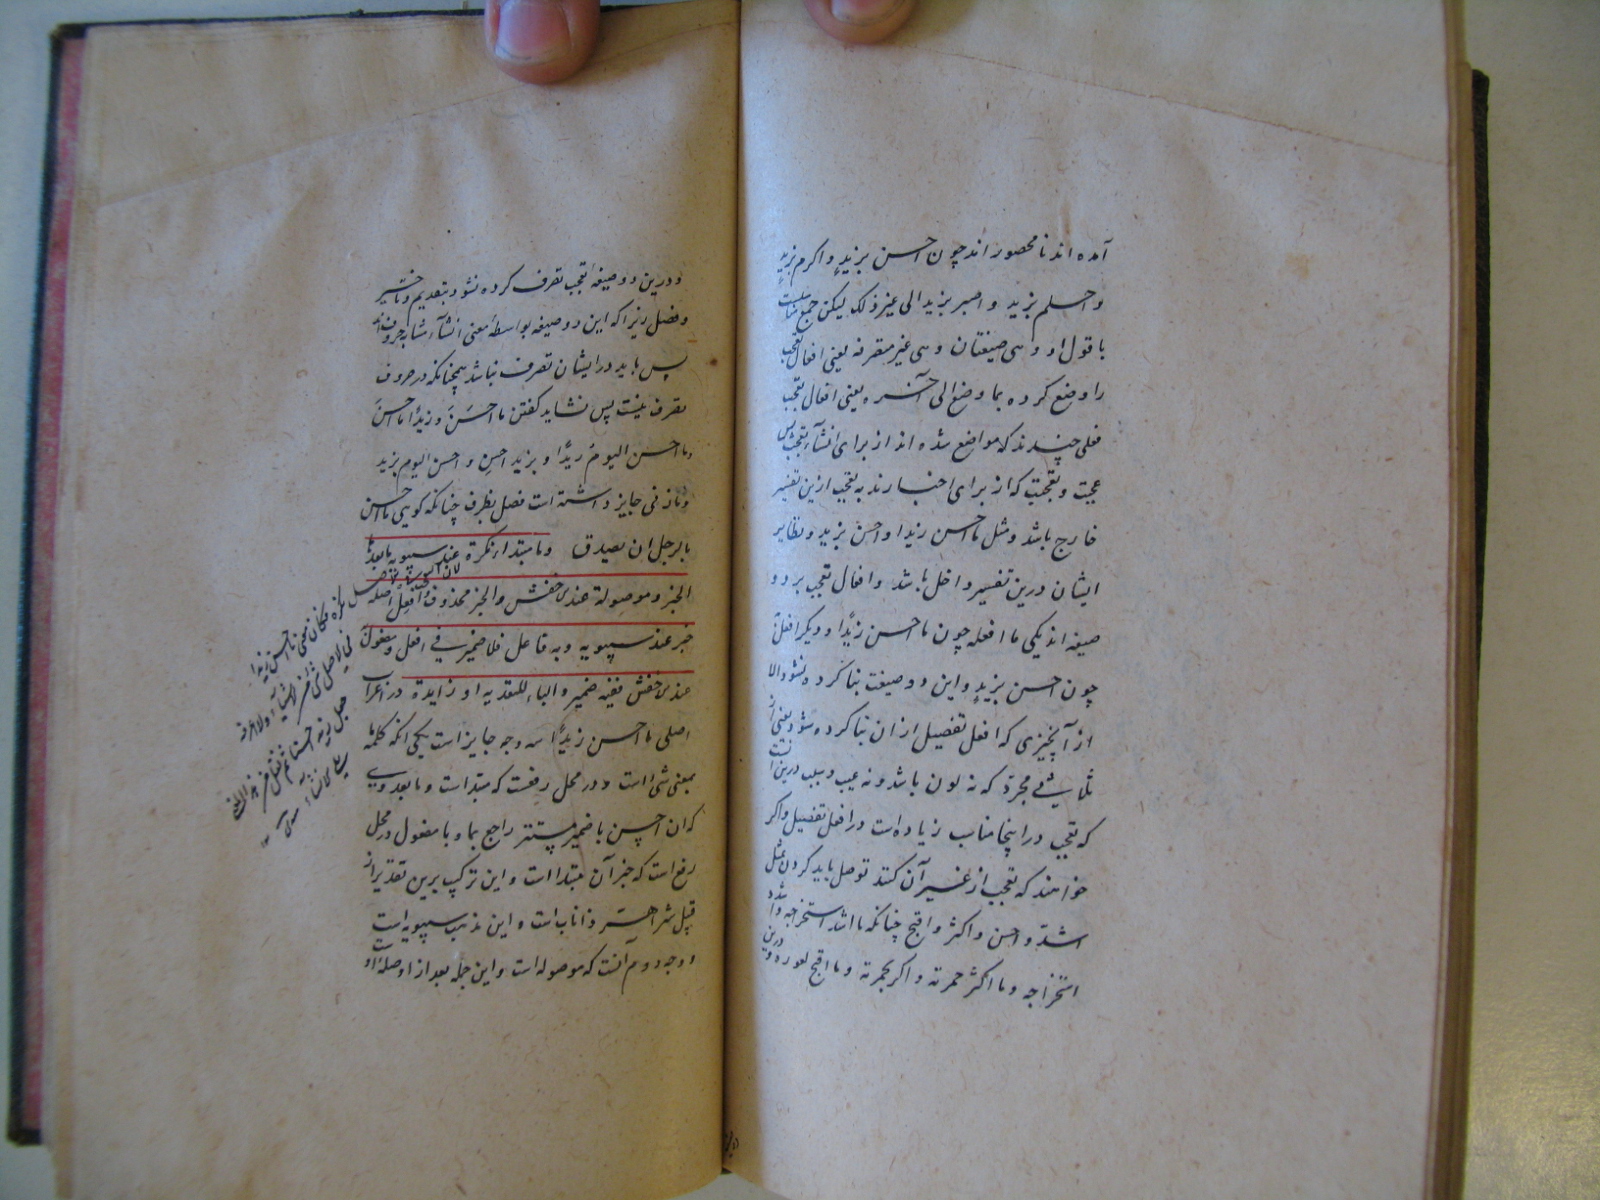 آمده اند نا محصور اند چون احسن بزیدٍ و اکرم بزیدٍ
و احلم بزید و اصبر بزید الی غیر ذلک لیکن جمع
با قول او و هی صیغتان و هی غیر متصرفه یعنی افعال تعجب
را وضع کرده بما وضع الی آخره یعنی افعال تعجب
فعلی چندند که مواضع شده اند از برای انشآء تعجب پس
عجبت و تعجبت که از برای اخبارند به تعجب ازین تفسیر
خارج باشد و مثل ما احسن زیدا و احسن بزید و نظایر
ایشان درین تفسیر داخل باشد و افعال تعجب بر دو
صیغه اند یکی ما افعله چون ما احسن زیدًا و دیگر افعل
چون احسن بزیدٍ و این دو صیغت بنا کرده نشود الا
از آنچیزی که افعل تفضیل از ان بنا کرده شود یعنی از
ثلاثی مجرد که نه لون باشد و نه عیب
که تعجب در اینجا مناسب زیاده است در افعل تفضیل و اکر
خواهند که تعجب از غیر آن کنند توصل باید کردن بمثل
اشدّ و احسن و اکثر و اقبح چنانکه ما اشد استخراجه و اشدد
استخراجه و ما اکثر حمرته و اکثر بحمرته و ما اقبح عوره
و درین دو صیغهٔ تعجب تصرف کرده نشود بتقدیم و تاخیر
و فصل زیرا که این دو صیغه بواسطهٔ معنی انشآء مشابه حروف اند
پس باید در ایشان تصرف نباشد همچنانکه در حروف
تصرف نیست پس نشاید کفتن ما احسَنَ و زیدًا ما احسنَ
و ما احسن الیومَ زیدًا و بزید احسِن و احسن الیوم بزید
و مازنی جایز داشته است فصل بظرف چنانکه کویی ما احسن
بالرجل ان یصدق و ما مبتداء نکرة عند سیبویه ما بعدها
الخبر و موصولة عند اخفش و الخبر محذوفٌ
خبر عند سیبویه و به فاعل فلا ضمیر فی افعل و مفعولٌ
عند اخفش ففیه ضمیر و الباء للتعدیه او زایدة در اعراب
اصلی ما احسن زیدًا سه وجه جایز است یکی آنکه کلمهٔ ما
بمعنی شیٔ است و در محل رفعست که مبتدا است و ما بعد وی
که ان احسن با ضمیر مستتر راجع بما و با مفعول در محل
رفع است که خبر آن مبتدا است و این ترکیب برین تقدیر از
قبیل شر اهر ذا ناب است و این مذهب سیبویه است
و وجه دوم آنست که موصوله است و این جمله بعد از او صلهٔ او